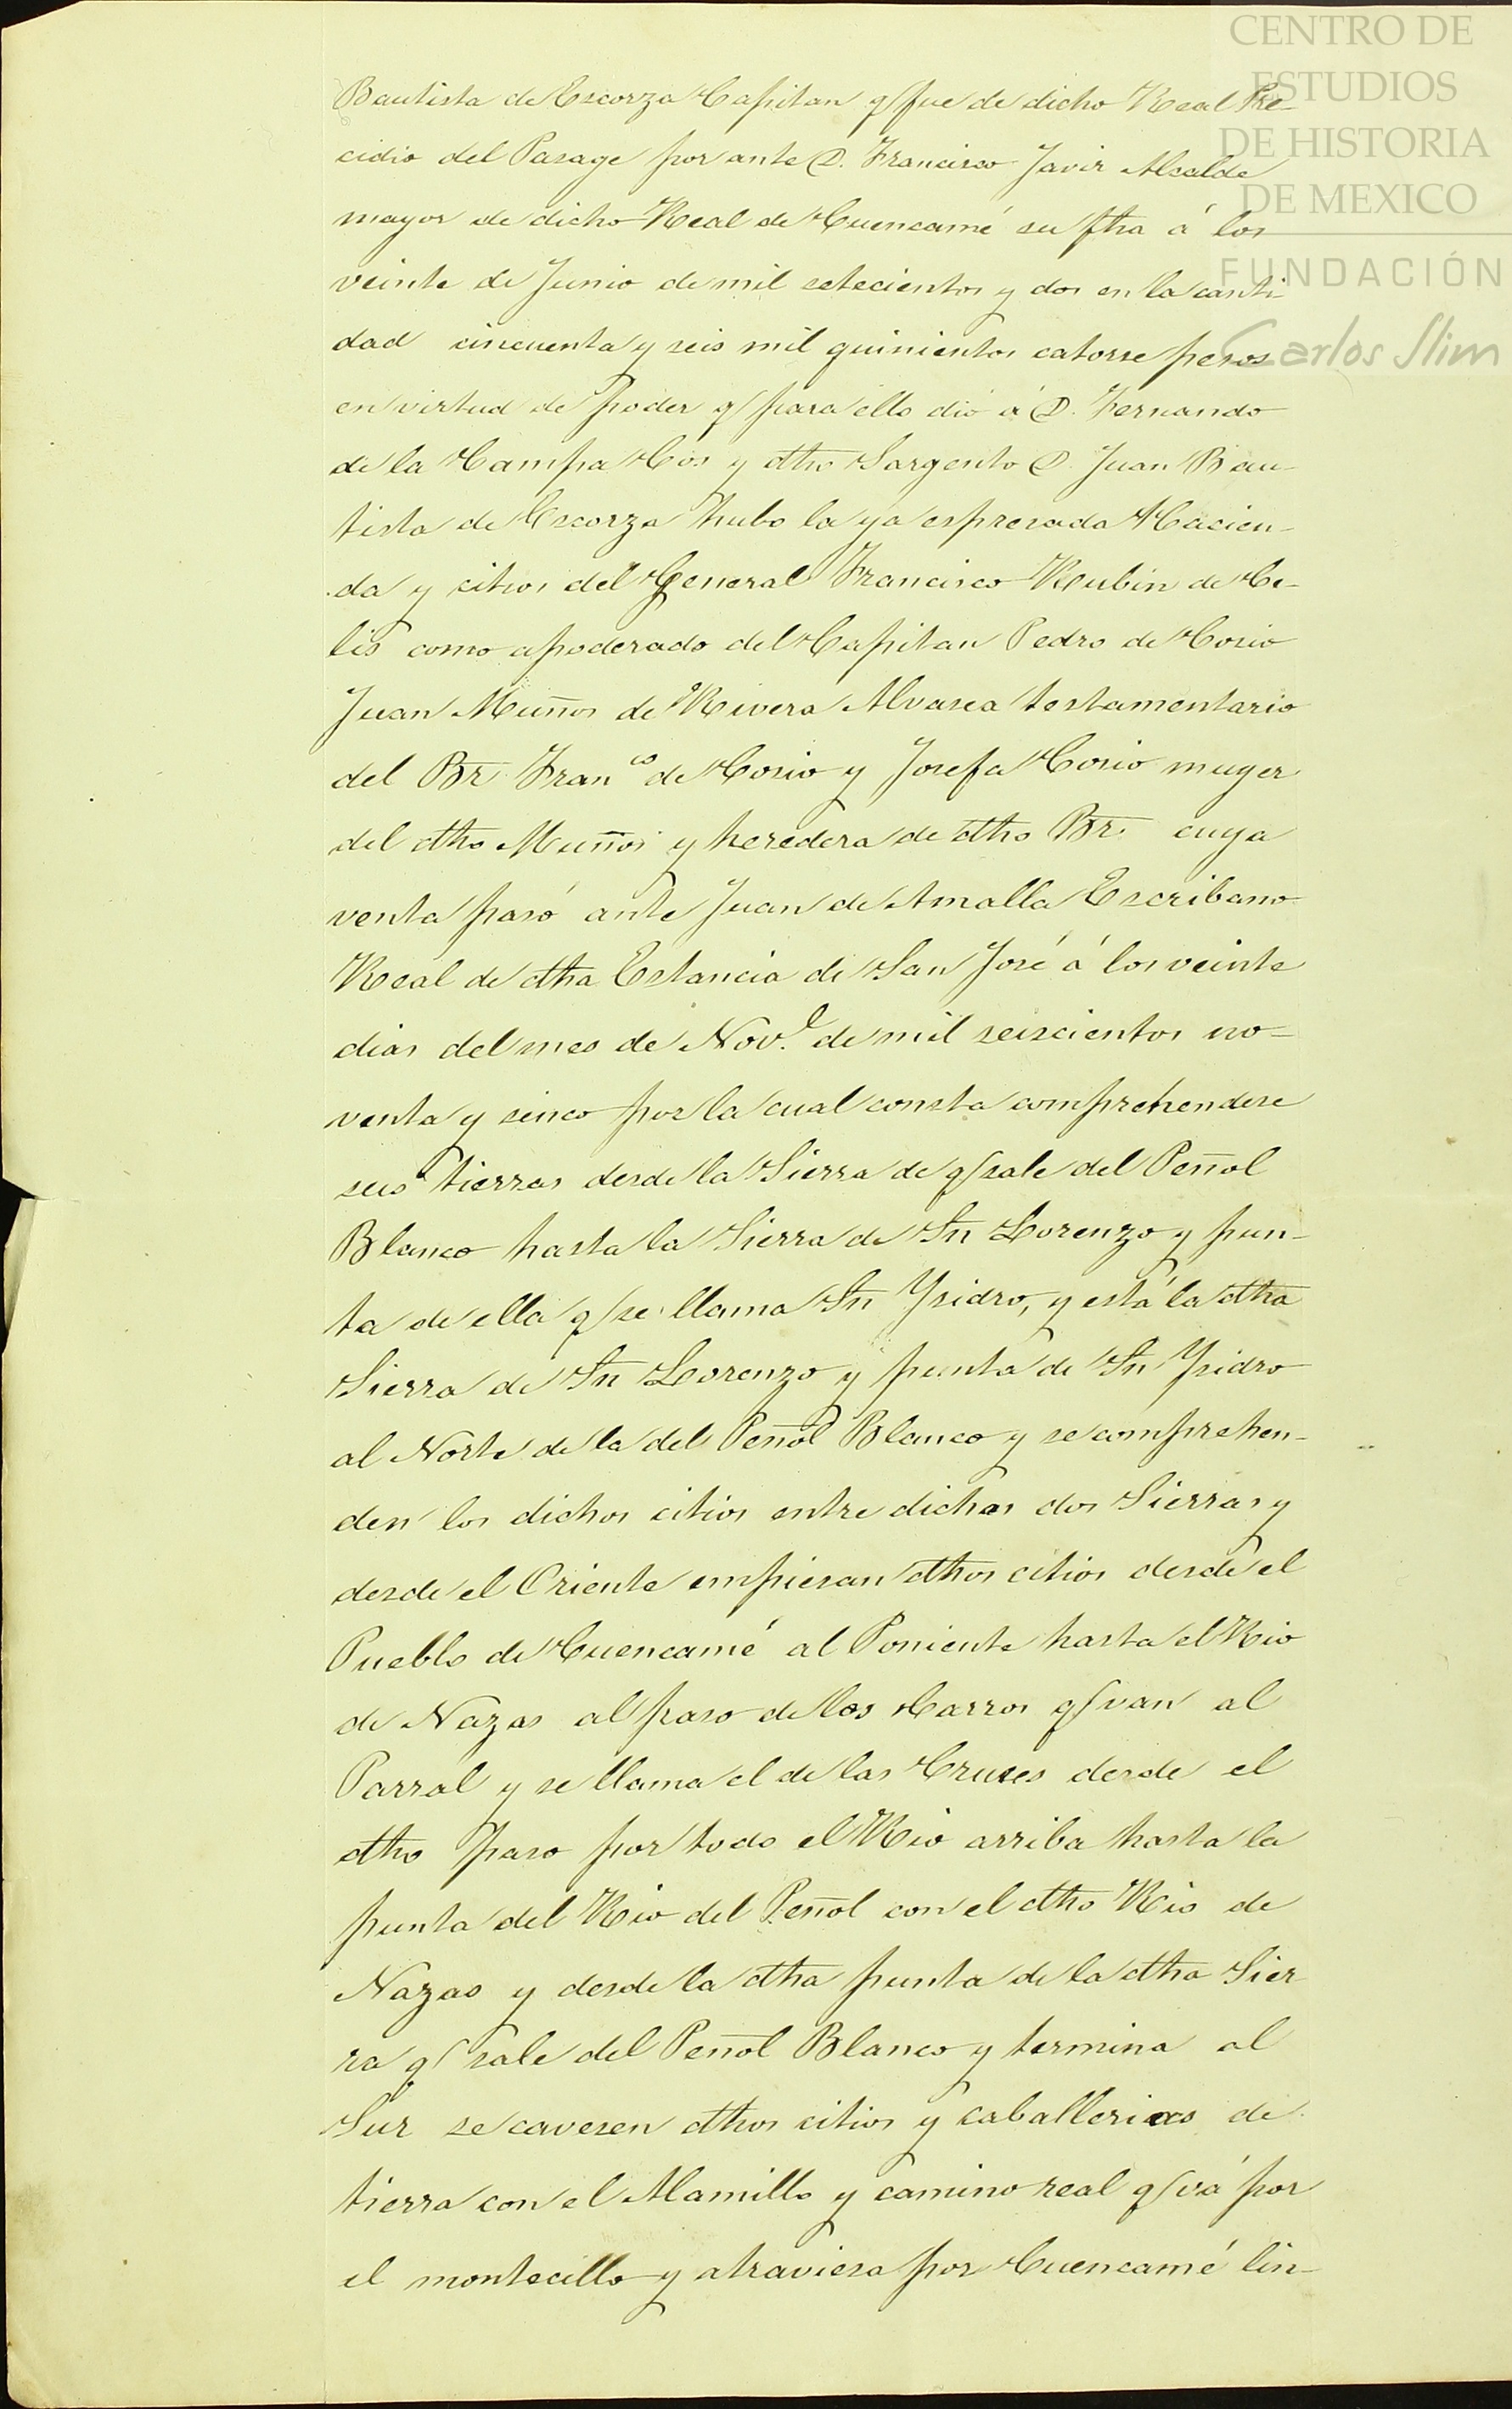 CENTRO DE
ESTUDIOS
DE HISTORIA
DE MEXICO
FUNDACIÓN
Carlos Slim
Bautista de Escorza Capitan q fue de dicho Real Pre-
cidio del Pasage por ante D. Francisco Javir Alcalde
mayor de dicho Real de Cuencamé su fha á los
veinte de Junio de mil setecientos y dos en la canti-
dad cincuenta y seis mil quinientos catorse pesos
en virtud de poder q para ello dió á D. Fernando
de la Campa Cos y dho Sargento D. Juan Bau-
tista de Escorza hubo la ya espresada Hacien-
da y citios del General Francisco Rubin de Ce-
lis como apoderado del Capitan Pedro de Cosio
Juan Muños de Rivera Alvasea testamentario
del Br Fran.co de Cosio y Josefa Cosio muger
del dho Muños y heredera de dho Br. cuya
venta pasó ante Juan de Amalla Escribano
Real de dha Estancia de San José á los veinte
dias del mes de Nov.e de mil seiscientos no-
venta y sinco por la cual consta comprehendese
sus tierras desde la Sierra de q sale del Peñol
Blanco hasta la Sierra de Sn Lorenzo y pun-
ta de ella q se llama Sn Ysidro, y está la dha
Sierra de Sn Lorenzo y punta de Sn Ysidro
al Norte de la del Peñol Blanco y se comprehen-
den los dichos citios entre dichas dos Sierras y
desde el Oriente empiesan dhos citios desde el
Pueblo de Cuencamé al Poniente hasta el Rio
de Nazas al paso de los Carros q van al
Parral y se llama el de las Cruses desde el
dho paso por todo el Rio arriba hasta la
punta del Rio del Peñol con el dho Rio de
Nazas y desde la dha punta de la dha Sier
ra q sale del Peñol Blanco y termina al
Sur se cavesen dhos citios y caballerias de
tierra con el Alamillo y camino real q vá por
el montecillo y atraviesa por Cuencamé lin-